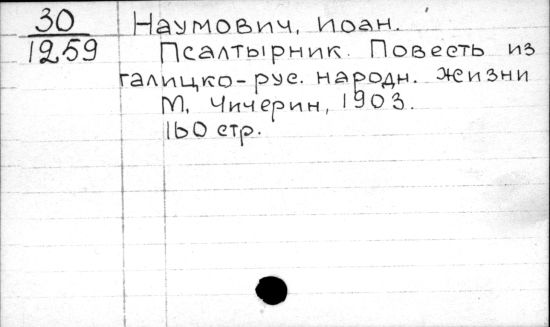 30 Наумович, Иоан.
1259 Псалтырник. Повесть из
галицко-рус. народн. жизни
М, Чичерин, 1903.
160 стр.